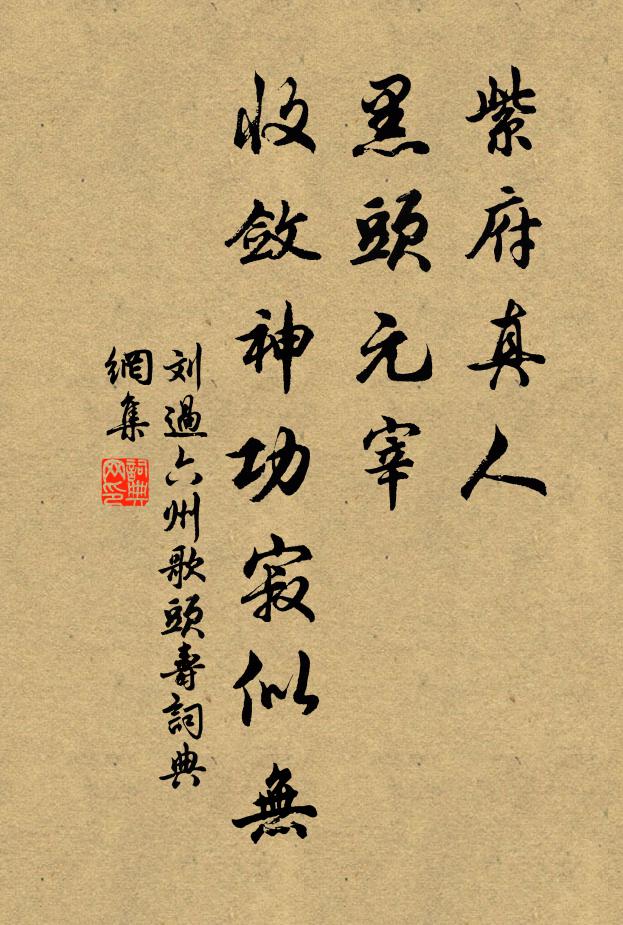 紫府真人
黑頭元宰
收斂神功寂似無
刘過六州歌頭壽詞典
網集
詞典網印